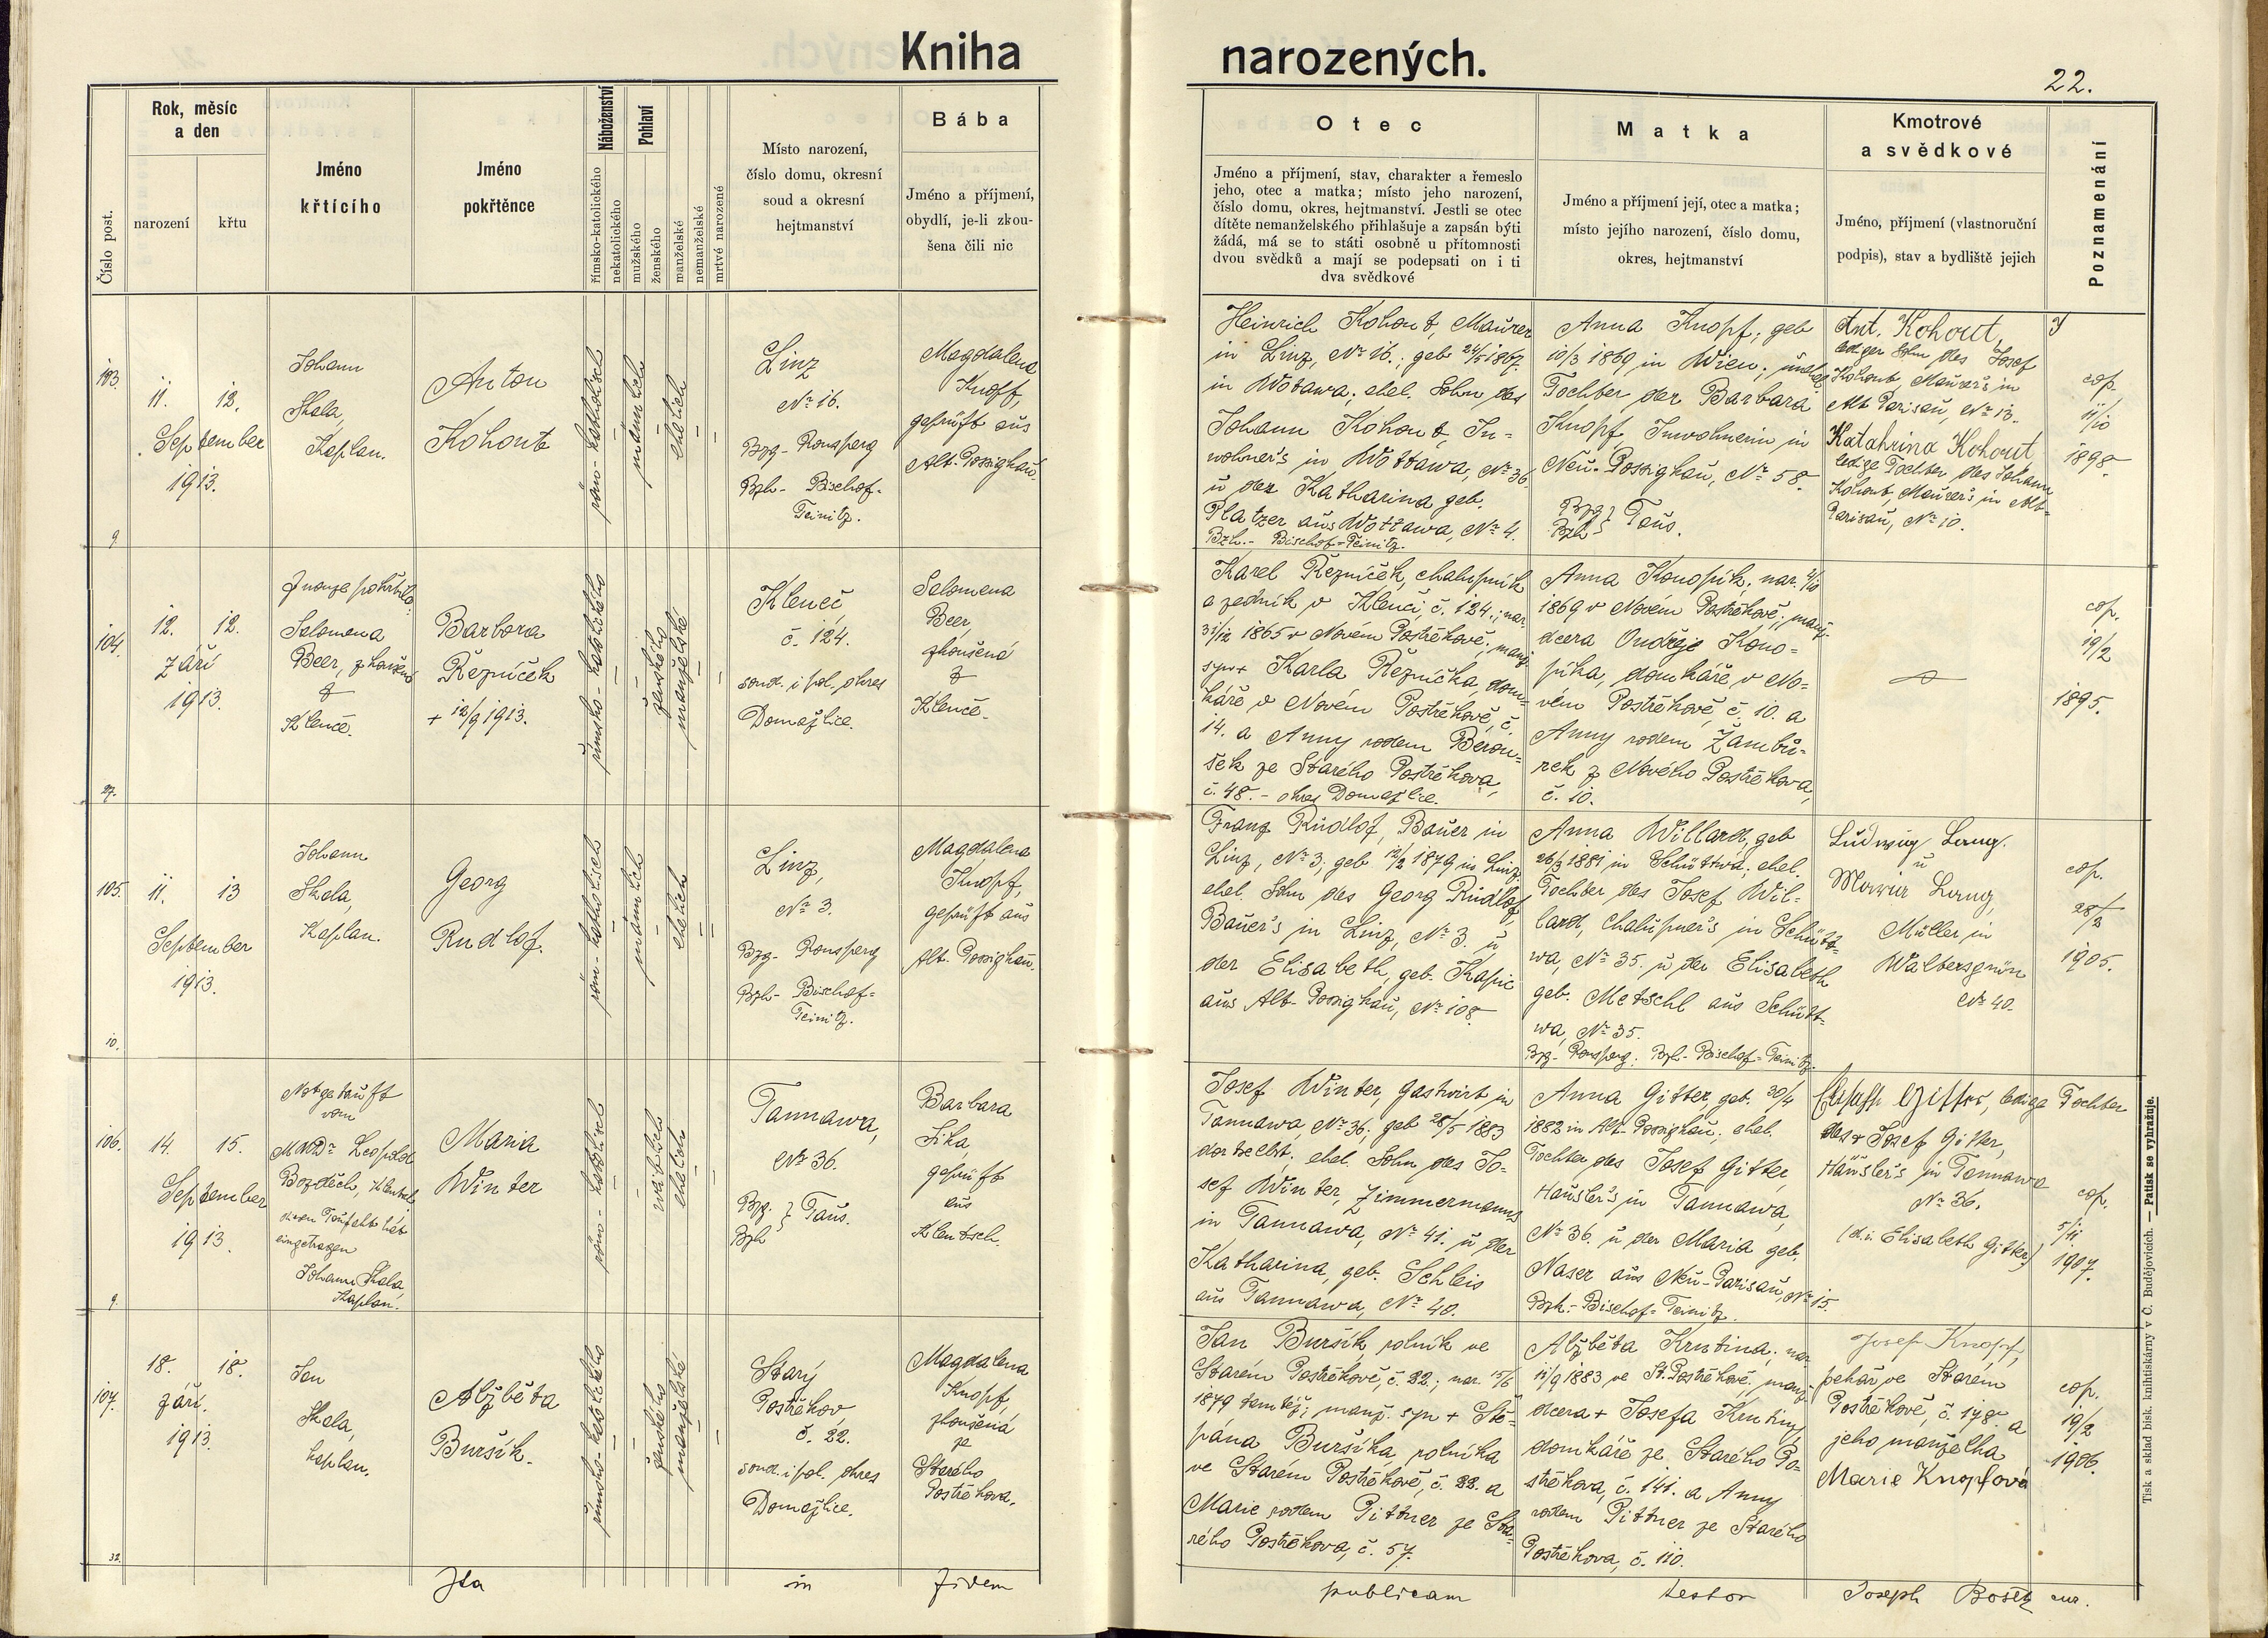 Kniha narozených.
22.
Číslo post.
Rok, měsíc
a den
narození
křtu
Jméno
křtícího
Jméno
pokřtěnce
Náboženství
římsko-katolického
nekatolického
Pohlaví
mužského
ženského
manželské
nemanželské
mrtvé narozené
Místo narození,
číslo domu, okresní
soud a okresní
hejtmanství
Bába
Jméno a příjmení,
obydlí, je-li zkou-
šena čili nic
Otec
Jméno a příjmení, stav, charakter a řemeslo
jeho, otec a matka; místo jeho narození,
číslo domu, okres, hejtmanství. Jestli se otec
dítěte nemanželského přihlašuje a zapsán býti
žádá, má se to státi osobně u přítomnosti
dvou svědků a mají se podepsati on i ti
dva svědkové
Matka
Jméno a příjmení její, otec a matka;
místo jejího narození, číslo domu,
okres, hejtmanství
Kmotrové
a svědkové
Jméno, příjmení (vlastnoruční
podpis), stav a bydliště jejich
Poznamenání
103.
11. 12.
September
1913.
9.
Johann
Skala,
Kaplan.
Anton
Kohout
röm-katholisch
männlich
ehelich
Linz
No 16.
Bzg- Ronsperg
Bzh- Bischof-
Teinitz.
Magdalena
Knopf,
geprüft aus
Alt-Possighau.
Heinrich Kohout, Maurer
in Linz, No 16.; geb 24/5 1867.
in Wottawa; ehel. Sohn des
Johann Kohout, In-
wohner's in Wottawa, No 36.
u der Katharina geb.
Platzer aus Wottawa, No 4.
Bzh.- Bischof-Teinitz.
Anna Knopf; geb
10/3 1869 in Wien; unehel.
Tochter der Barbara
Knopf Inwohnerin in
Neu-Possighau, No 58.
Bzg } Taus.
Bzh
Ant. Kohout,
lediger Sohn des Josef
Kohout, Maurer's in
Alt Parisau, No 13.
Katahrina Kohout
ledige Tochter des Johann
Kohout, Maurer's in Alt-
Parisau, No 10.
cop.
11/10
1898.
104.
12. 12.
září
1913.
27.
Z nouze pokřtila:
Salomena
Beer, zkoušená
z
Klenče.
Barbora
Řezníček
+ 12/9 1913.
římsko-katolického
ženského
manželské
Kleneč
č. 124.
soud. i pol. okres
Domažlice.
Salomena
Beer
zkoušená
z
Klenče.
Karel Řezníček, chalupník
a zedník v Klenčí, č. 124.; nar.
31/12 1865 v Novém Postřekově; manž.
syn + Karla Řezníčka, dom-
káře v Novém Postřekově, č.
14. a Anny rodem Berou-
šek ze Starého Postřekova,
č. 48. - okres Domažlice.
Anna Konopík, nar. 2/10
1869 v Novém Postřekově; manž.
dcera Ondřeje Kono-
píka, domkáře v No-
vém Postřekově, č. 10. a
Anny rodem Žambů-
rek z Nového Postřekova,
č. 10.
cop.
19/2
1895.
105.
11. 13
September
1913.
10.
Johann
Skala,
Kaplan.
Georg
Rudlof.
röm-katholisch
männlich
ehelich
Linz,
No 3.
Bzg- Ronsperg
Bzh- Bischof-
Teinitz.
Magdalena
Knopf,
geprüft aus
Alt-Possighau.
Franz Rudlof, Bauer in
Linz, No 3; geb 12/2 1879 in Linz;
ehel. Sohn des Georg Rudlof,
Bauer's in Linz, No 3. u
der Elisabeth, geb. Kapic
aus Alt-Possighau, No 108.
Anna Willard, geb
26/3 1881 in Schüttwa; ehel.
Tochter des Josef Wil-
lard, Chalupner's in Schütt-
wa, No 35. u der Elisabeth
geb. Metschl aus Schütt-
wa, No 35.
Bzg- Ronsperg: Bzh- Bischof-Teinitz.
Ludwig Lang.
u
Lang,
Müller in
Waltersgrün
No 40.
cop.
28/2
1905.
106.
14. 15.
September
1913.
9.
Notgetauft
vom
MUDr Leopold
Bozděch, Klentsch
den Taufakt hat
eingetragen
Johann Skala,
Kaplan.
Maria
Winter
röm-katholisch
weiblich
ehelich
Tannawa,
No 36.
Bzg. } Taus.
Bzh
Barbara
Sika,
geprüft
aus
Klentsch.
Josef Winter, Gastwirt, in
Tannawa, No 36; geb 28/5 1883
dortselbst; ehel. Sohn des Jo-
sef Winter, Zimmermanns
in Tannawa, No 41. u der
Katharina, geb. Schleis
aus Tannawa, No 40.
Anna Gitter, geb. 30/4
1882 in Alt-Possighau; ehel.
Tochter des Josef Gitter
Häusler's in Tannawa,
No 36. u der Maria geb.
Naser aus Neu-Parisau, No 15.
Bzh.- Bischof-Teinitz.
Elisabeth Gitter, ledige Tochter
des + Josef Gitter,
Häusler's in Tannawa
No 36.
(d.i. Elisabeth Gitter)
cop.
5/11
1907.
107.
18. 18.
září.
1913.
32.
Jan
Skala,
kaplan.
Alžběta
Buršík.
římsko-katolického
ženského
manželské
Starý
Postřekov
č. 22.
soud. i pol. okres
Domažlice.
Magdalena
Knopf,
zkoušená
ze
Starého
Postřekova.
Jan Buršík, rolník ve
Starém Postřekově, č. 22.; nar. 15/6
1879 tamtéž; manž. syn + Ště-
pána Buršíka, rolníka
ve Starém Postřekově, č. 22. a
Marie rodem Pittner ze Sta-
rého Postřekova, č. 57.
Alžběta Krutina; nar.
11/9 1883 ve St. Postřekově, manž.
dcera + Josefa Krutiny,
domkáře ze Starého Po-
střekova, č. 141. a Anny
rodem Pittner ze Starého
Postřekova, č. 110.
Josef Knopf,
pekař ve Starém
Postřekově, č. 178. a
jeho manželka
Marie Knopfová
cop.
19/2
1906.
Ita in fidem publicam testor Joseph Bošek cur.
Tisk a sklad bisk. knihtiskárny v Č. Budějovicích. — Patisk se vyhražuje.